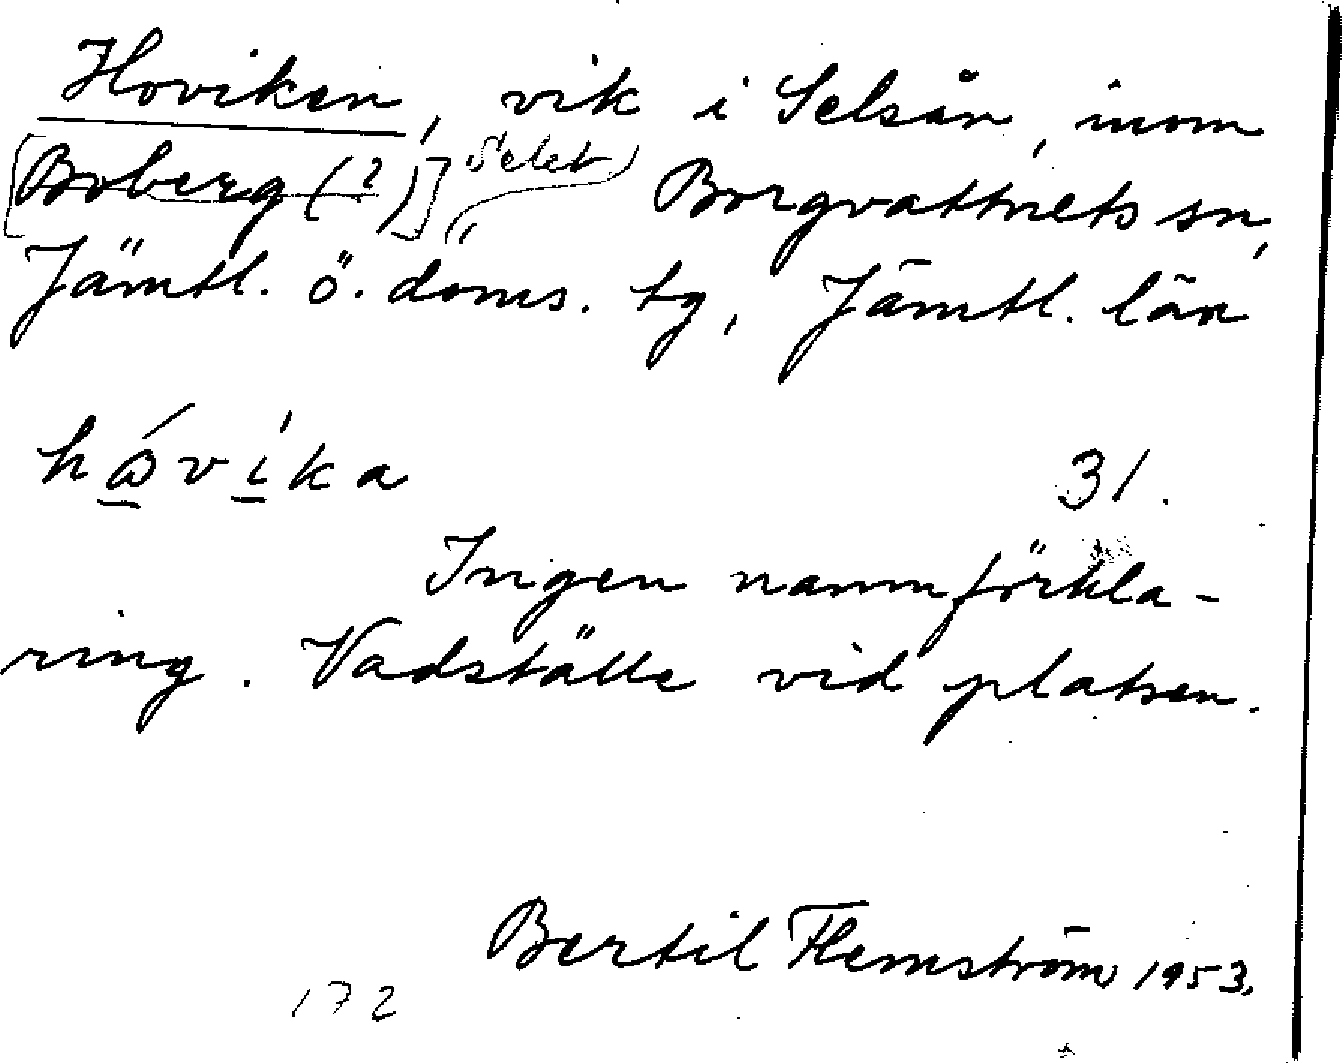 Hoviken, vik i Selsån, inom
[Boberg (?)] Selet Borgvattnets sn,
Jämtl. ö. doms. tg, Jämtl. län
håvika 31.
Ingen namnförkla-
ring. Vadställe vid platsen.
Bertil Flemström 1953.
172